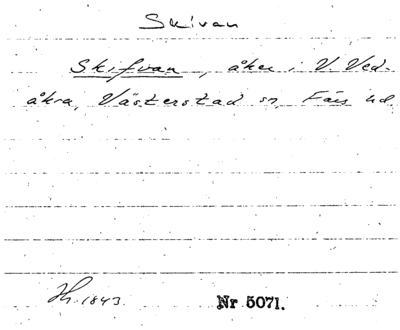 Skivan
Skifvan, åker i V. Ved-
åkra, Västerstad sn, Färs hd
Jh. 1843.
Nr 5071.